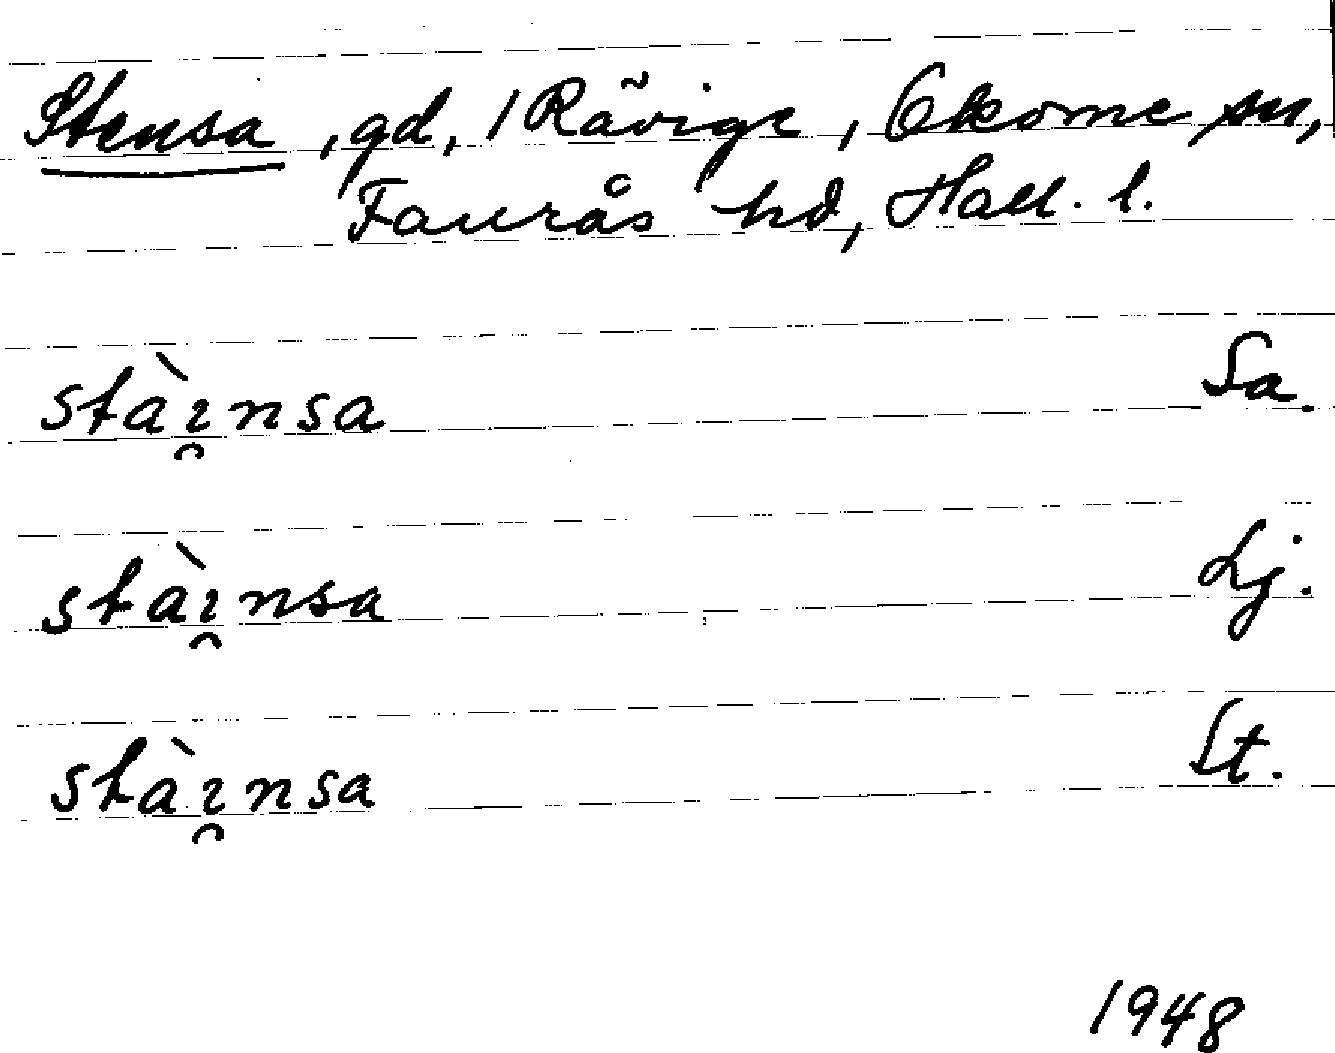 Stensa, gd, 1 Rävige, Okome sn,
Faurås hd, Hall. l.
stàı̯nsa Sa.
stàı̯nsa Lj.
stàı̯nsa St.
1948